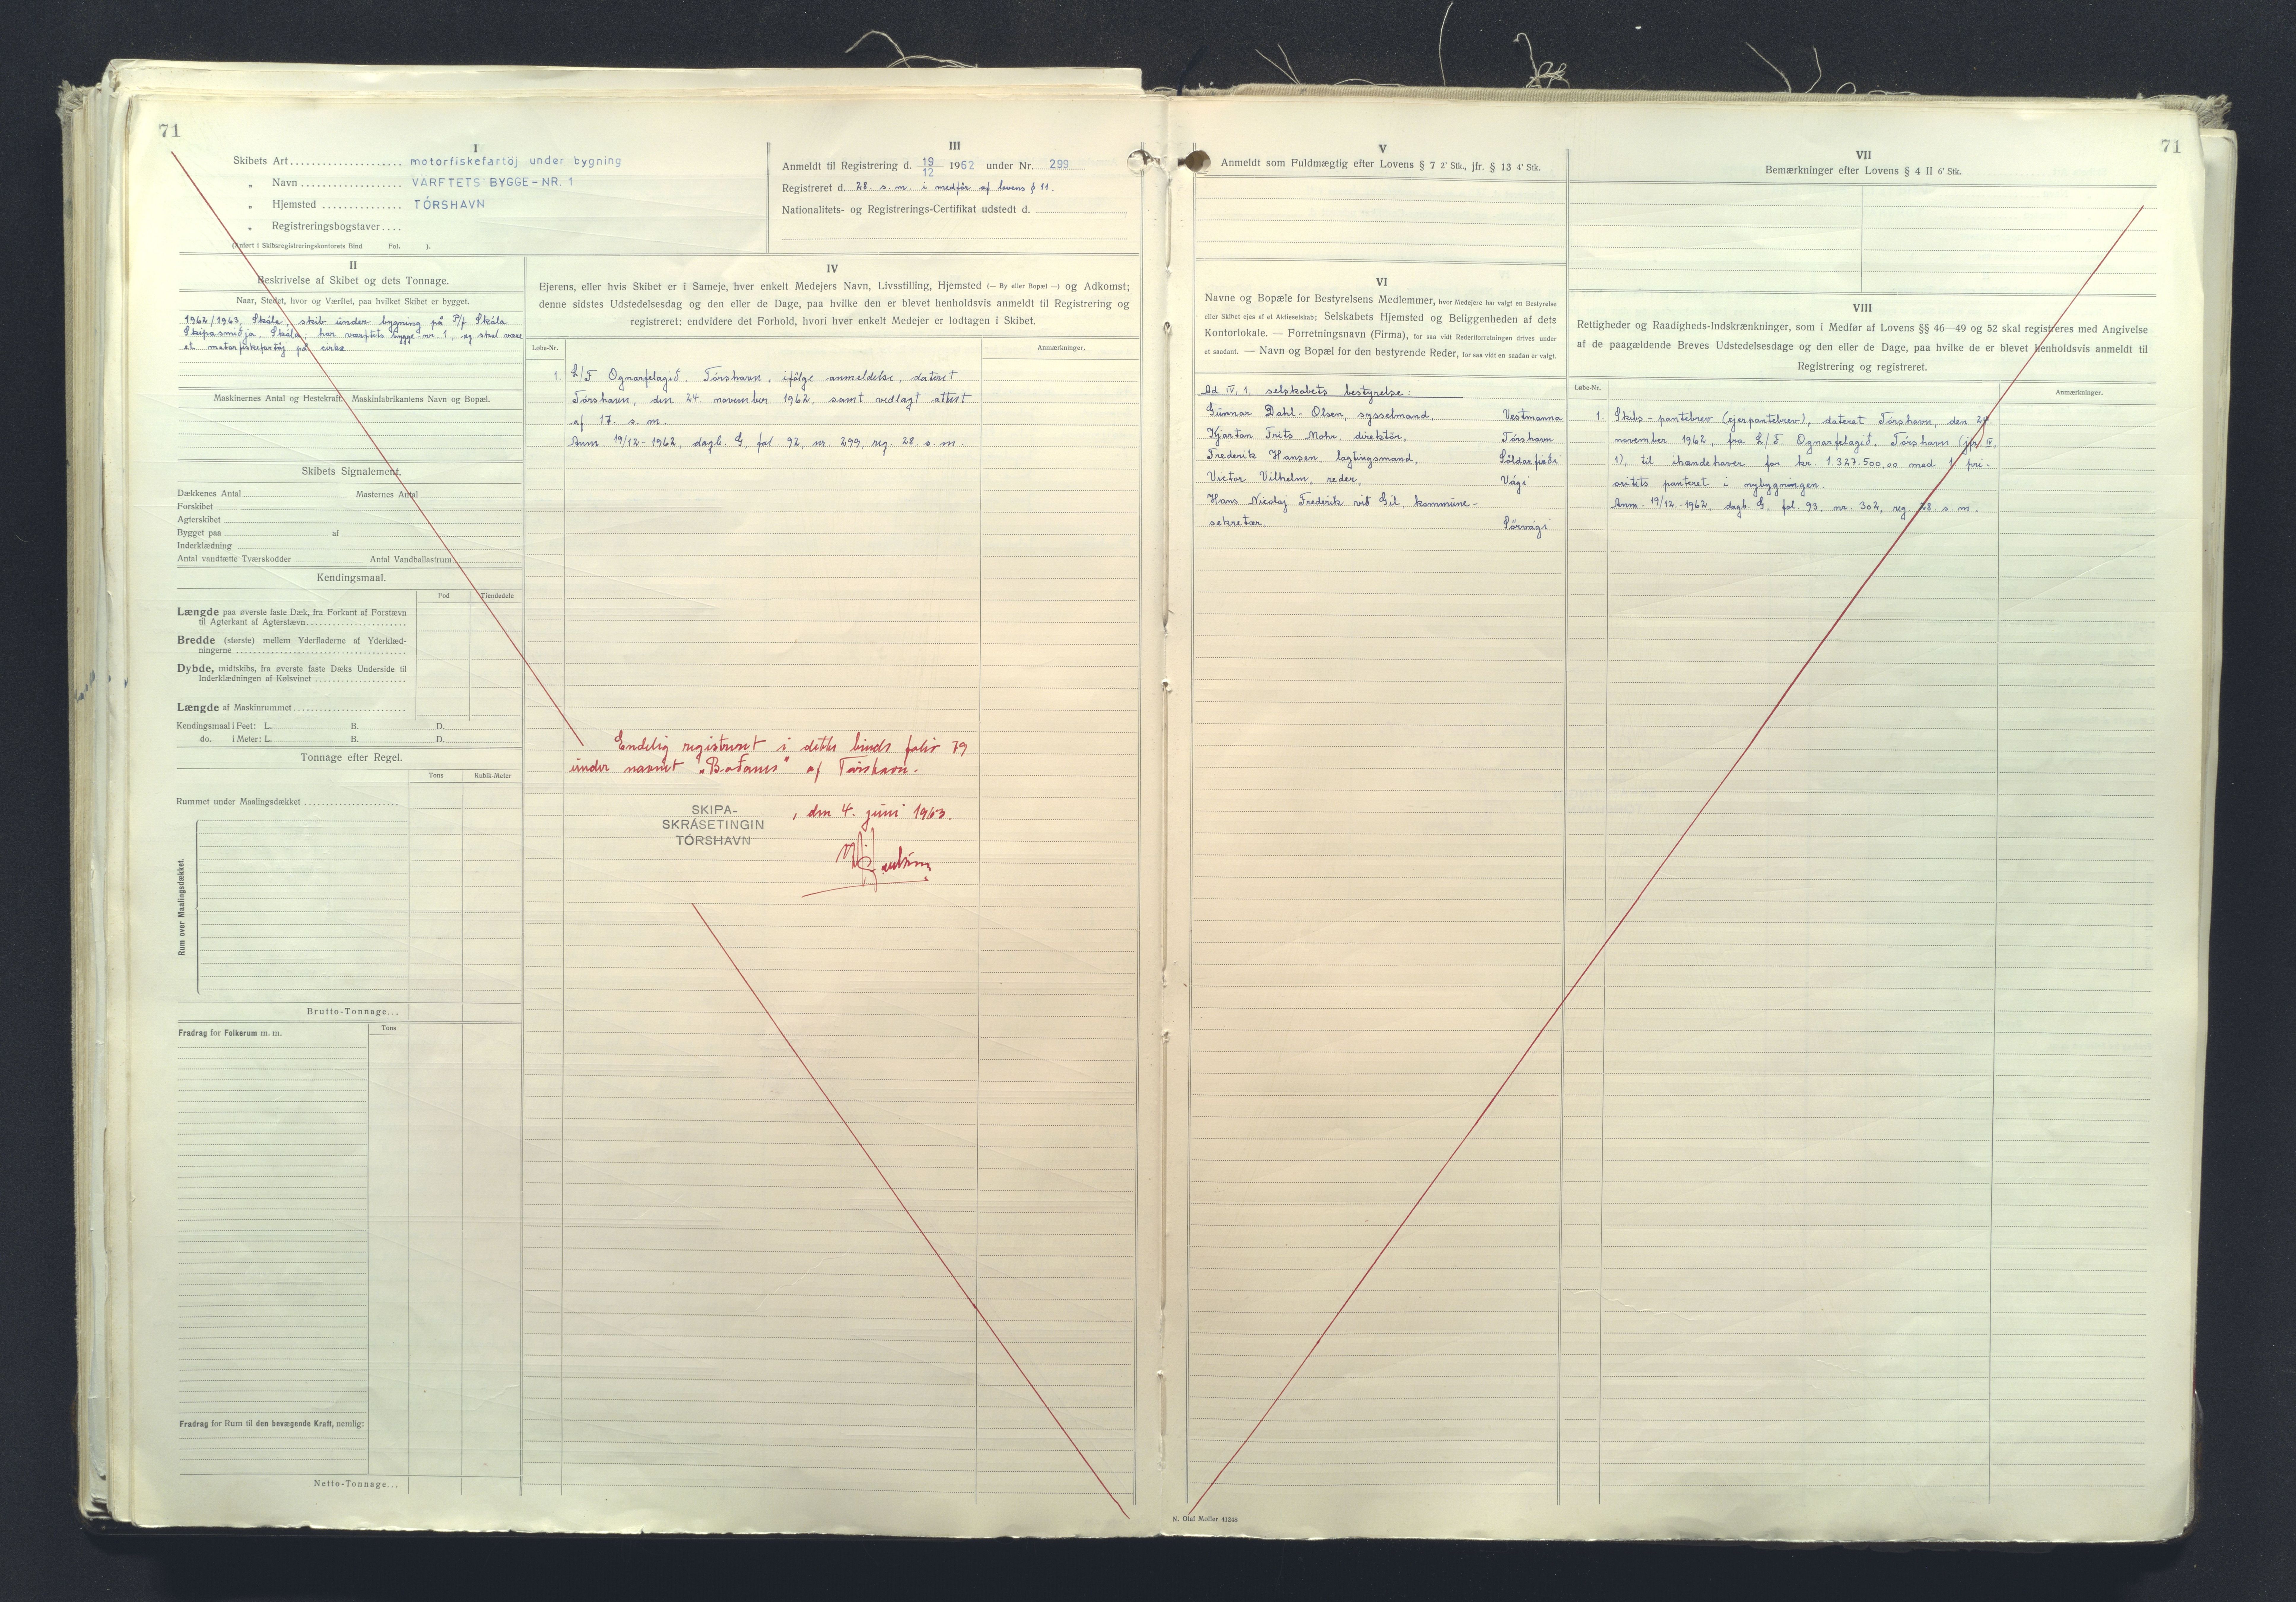 71
I
Skibets Art.................... motorfiskefartöj under bygning
„ Navn.................. VÄRFTETS BYGGE-NR. 1
„ Hjemsted............... TÓRSHAVN
„ Registreringsbogstaver....
(Anført i Skibsregistreringskontorets Bind Fol. ).
III
Anmeldt til Registrering d. 19/12 1962 under Nr. 299
Registreret d. 28. s. m. i medför af lovens § 11.
Nationalitets- og Registrerings-Certifikat udstedt d.
II
Beskrivelse af Skibet og dets Tonnage.
Naar, Stedet, hvor og Værftet, paa hvilket Skibet er bygget.
1962/1963, Skála, skib under bygning på P/f Skála
Skipasmiðja, Skála; har værftets bygge-nr. 1, og skal være
et motorfiskefartöj på cirka
Maskinernes Antal og Hestekraft. Maskinfabrikantens Navn og Bopæl.
Skibets Signalement.
Dækkenes Antal Masternes Antal
Forskibet
Agterskibet
Bygget paa af
Inderklædning
Antal vandtætte Tværskodder Antal Vandballastrum
Kendingsmaal.
Fod Tiendedele
Længde paa øverste faste Dæk, fra Forkant af Forstævn
til Agterkant af Agterstævn
Bredde (største) mellem Yderfladerne af Yderklæd-
ningerne
Dybde, midtskibs, fra øverste faste Dæks Underside til
Inderklædningen af Kølsvinet
Længde af Maskinrummet
Kendingsmaal i Feet: L. B. D.
do. i Meter: L. B. D.
Tonnage efter Regel.
Tons Kubik-Meter
Rummet under Maalingsdækket
Rum over Maalingsdækket.
Brutto-Tonnage...
Fradrag for Folkerum m. m. Tons
Fradrag for Rum til den bevægende Kraft, nemlig:
Netto-Tonnage...
IV
Ejerens, eller hvis Skibet er i Sameje, hver enkelt Medejers Navn, Livsstilling, Hjemsted (— By eller Bopæl —) og Adkomst;
denne sidstes Udstedelsesdag og den eller de Dage, paa hvilke den er blevet henholdsvis anmeldt til Registrering og
registreret: endvidere det Forhold, hvori hver enkelt Medejer er lodtagen i Skibet.
Løbe-Nr. Anmærkninger.
1. L/F Ognarfelagið, Tórshavn, ifölge anmeldelse, dateret
Tórshavn, den 24. november 1962, samt vedlagt attest
af 17. s. m.
Anm. 19/12-1962, dagb. G, fol 92, nr. 299, reg. 28. s. m.
Endelig registreret i dette binds folio 79
under navnet „Baðanes" af Tórshavn.
SKIPA-
SKRÁSETINGIN
TÓRSHAVN
, den 4. juni 1963.
71
V
Anmeldt som Fuldmægtig efter Lovens § 7 2' Stk., jfr. § 13 4' Stk.
VII
Bemærkninger efter Lovens § 4 II 6' Stk.
VI
Navne og Bopæle for Bestyrelsens Medlemmer, hvor Medejere har valgt en Bestyrelse
eller Skibet ejes af et Aktieselskab; Selskabets Hjemsted og Beliggenheden af dets
Kontorlokale. — Forretningsnavn (Firma), for saa vidt Rederiforretningen drives under
et saadant. — Navn og Bopæl for den bestyrende Reder, for saa vidt en saadan er valgt.
Ad IV, 1, selskabets bestyrelse:
Gunnar Dahl-Olsen, sysselmand, Vestmanna
Kjartan Frits Mohr, direktör, Tórshavn
Frederik Hansen, lagtingsmand, Söldarfirði
Victor Vilhelm, reder, Vági
Hans Nicolaj Frederik við Gil, kommune-
sekretær, Sörvági
VIII
Rettigheder og Raadigheds-Indskrænkninger, som i Medfør af Lovens §§ 46—49 og 52 skal registreres med Angivelse
af de paagældende Breves Udstedelsesdage og den eller de Dage, paa hvilke de er blevet henholdsvis anmeldt til
Registrering og registreret.
Løbe-Nr. Anmærkninger.
1. Skibs-pantebrev (ejerpantebrev), dateret Tórshavn, den 24.
november 1962, fra L/F Ognarfelagið, Tórshavn (jfr. IV,
1), til ihændehaver for kr. 1.327.500,00 med 1 pri-
oritets panteret i nybygningen.
Anm. 19/12.-1962, dagb. G, fol. 93, nr. 302, reg. 28. s. m.
N. Olaf Møller 41248